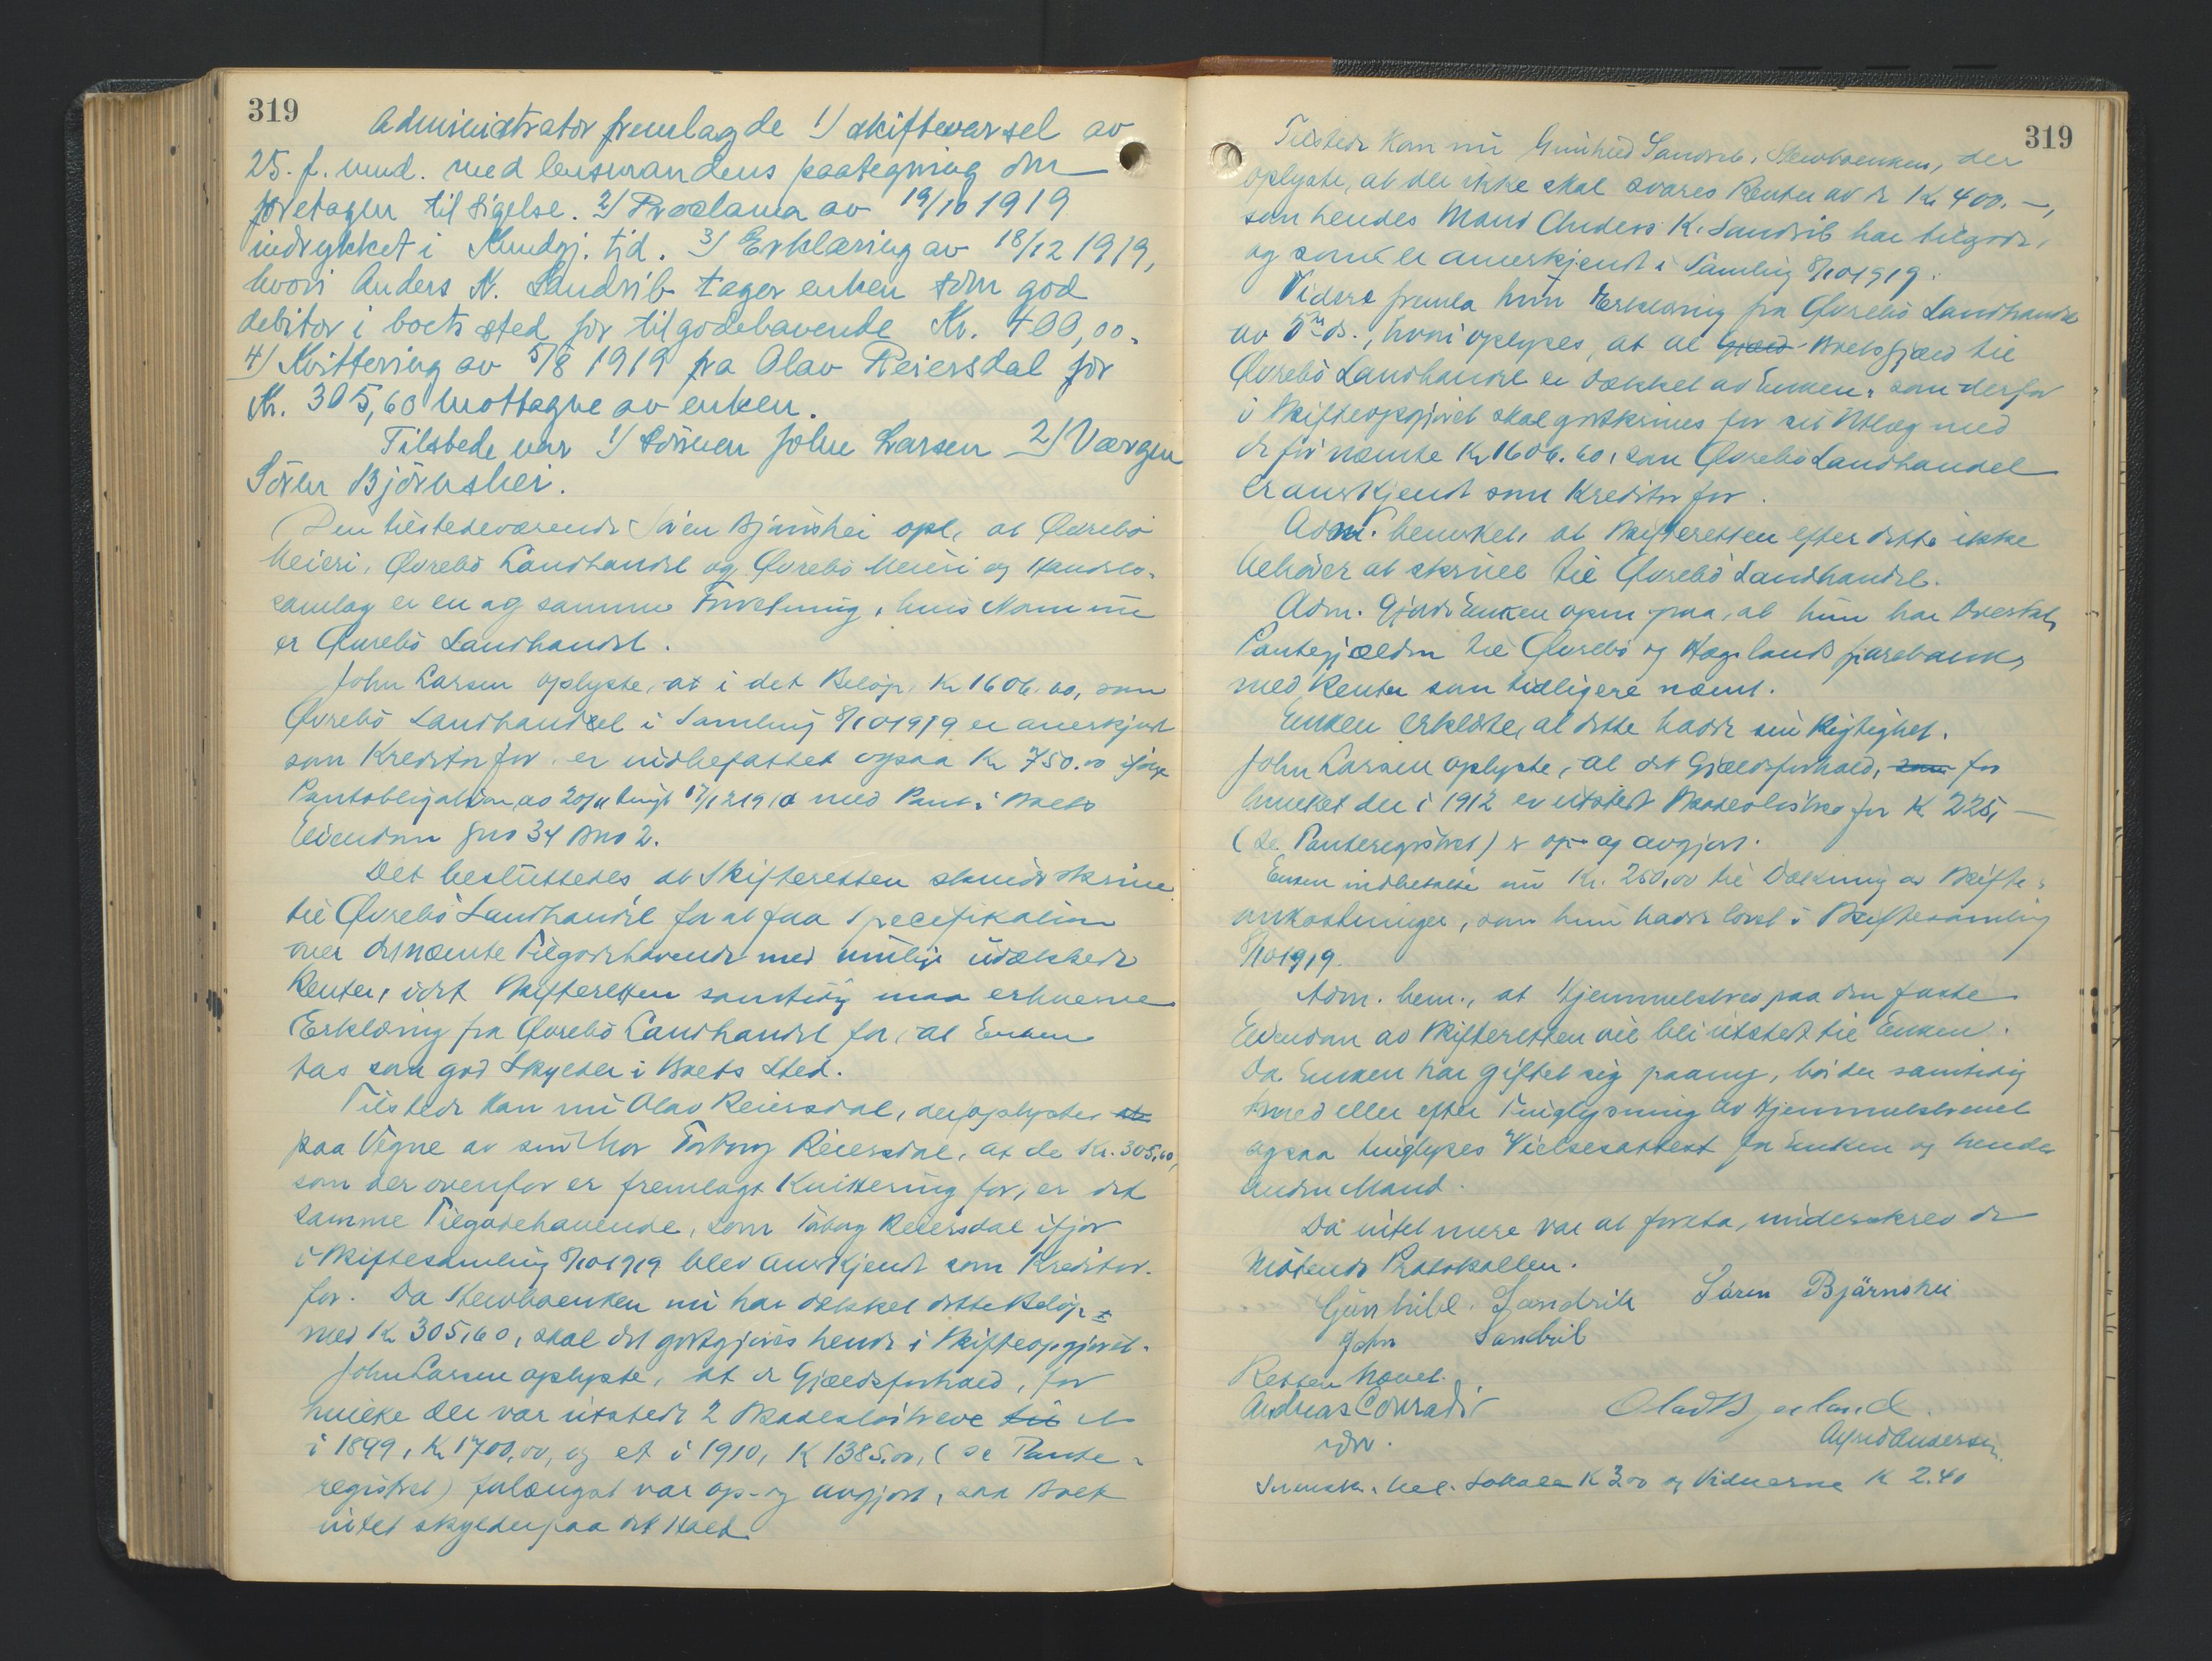 319
Administrator fremlagde 1/ skiftevarsel av
25. f. mnd. med lensmandens paategning om
foretagen tilsigelse. 2/ Proclama av 19/10 1919
indrykket i Kundgj. tid. 3/ Erklæring av 18/12 1919,
hvori Anders K. Sandrib tager enken som god
debitor i boets sted for tilgodehavende Kr. 400,00.
4/ Kvittering av 5/8 1919 fra Olav Reiersdal for
Kr. 305,60 mottagne av enken.
Tilstede var 1/ Sønnen John Larsen 2/ Værgen
Sören Björnshei.
Den tilstedeværende Sören Bjørnshei opl. at Øvrebö
Meieri, Øvrebö Landhandel og Øvrebö Meieri og Handels-
samlag er en og samme Forretning, hvis Navn nu
er Øvrebö Landhandel.
John Larsen oplyste, at i det Beløp, Kr 1606.60, som
Øvrebö Landhandel i Samling 8/10 1919 er anerkjent
som Kreditor for, er indbefattet ogsaa Kr 750.00 ifølge
Pantobligation av 20/11 tingl. 17/12 1910 med Pant i Boets
Eiendom Gno 34 Bno 2.
Det besluttedes at Skifteretten skulde skrive
til Øvrebö Landhandel for at faa Specifikation
over det nævnte Tilgodehavende med mulige udækkede
Renter, idet Skifteretten samtidig maa erhverve
Erklæring fra Øvrebö Landhandel for, at Enken
tas som god Skylder i Boets Sted.
Tilstede kom nu Olav Reiersdal, der oplyste, at
paa Vegne av sin Mor Torborg Reiersdal, at de Kr. 305,60,
som der ovenfor er fremlagt Kvittering for, er det
samme Tilgodehavende, som Torborg Reiersdal ifjor
i Skiftesamling 8/10 1919 blev anerkjendt som Kreditor
for. Da Sterboenken nu har dækket dette Beløp
med Kr 305,60, skal det godtgjøres hende i Skifteopgjøret.
John Larsen oplyste, at de Gjældsforhold, for
hvilke der var utstedt 2 Skadesløsbreve til et
i 1899, Kr 1700,00, og et i 1910, Kr 1385.00, (se Pante-
registret) forlængst var op- og avgjort, saa Boet
intet skylder paa det Hold.
319
Tilstede kom nu Gunhild Sandrib, Sterboenken, der
oplyste, at der ikke skal svares Renter av de Kr 400.—,
som hendes Mand Anders K. Sandrib har tilgode,
og som er anerkjendt i Samling 8/10 1919.
Videre fremla hun Erklæring fra Øvrebö Landhandel
av ds., hvori oplyses, at al Gjæld Boets Gjæld til
Øvrebö Landhandel er dækket av Enken, som derfor
i Skifteopgjøret skal godskrives for sit Utlæg med
de før nævnte Kr 1606.60, som Øvrebö Landhandel
er anerkjendt som Kreditor for.
Adm. bemerket, at Skifteretten efter dette ikke
behöver at skrive til Øvrebö Landhandel.
Adm. gjorde Enken opm. paa, at hun har overtat
Pantegjælden til Øvrebö og Hægelands Sparebank
med Renter som tidligere nævnt.
Enken erklærte, at dette hadde sin Rigtighet.
John Larsen oplyste, at det Gjældsforhold, som for
hvilket der i 1912 er utstedt Skadesløsbrev for Kr 225,—
(se Panteregistret) er op- og avgjort.
Enken indbetalte nu Kr. 250,00 til Dækning av Skifte-
omkostninger, som hun hadde lovet i Skiftesamling
8/10 1919.
Adm. bem., at Hjemmelsbrev paa den faste
Eiendom av Skifteretten vil bli utstedt til Enken.
Da Enken har giftet sig paany, bör der samtidig
med eller efter Tinglysning av Hjemmelsbrevet
ogsaa tinglyses Vielsesattest for Enken og hendes
anden Mand.
Da intet mere var at foreta, underskrev de
Mötende Protokollen.
Gunhild. Sandrib Sören Björnshei
John Sandrib
Retten hævet.
Andreas Conradi
Alfred Andersen
Lokale K 3.00 og Vidnerne K 2.40